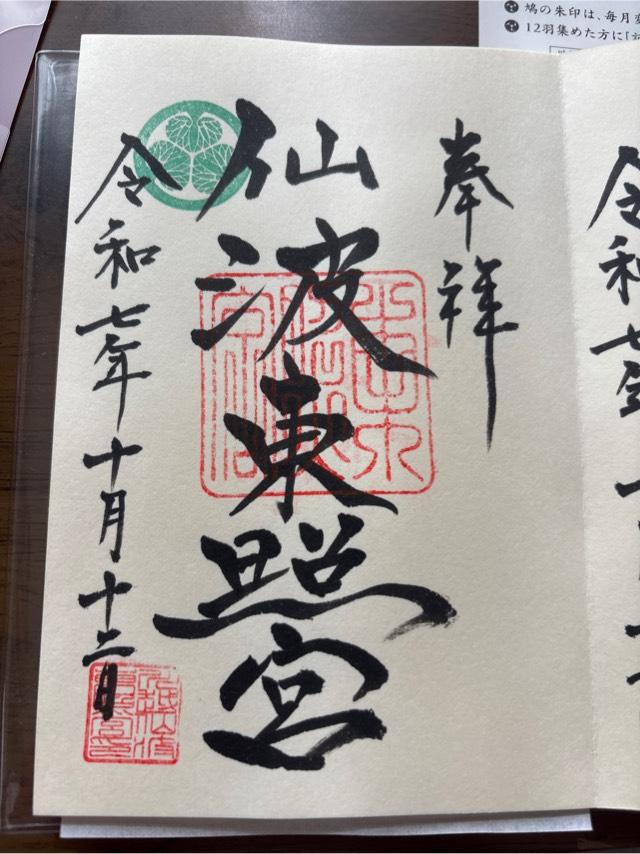 鳩の朱印は、毎月変
12羽集めた方に「
奉祥
仙波東照宮
令和七年十月十二日
令和七年